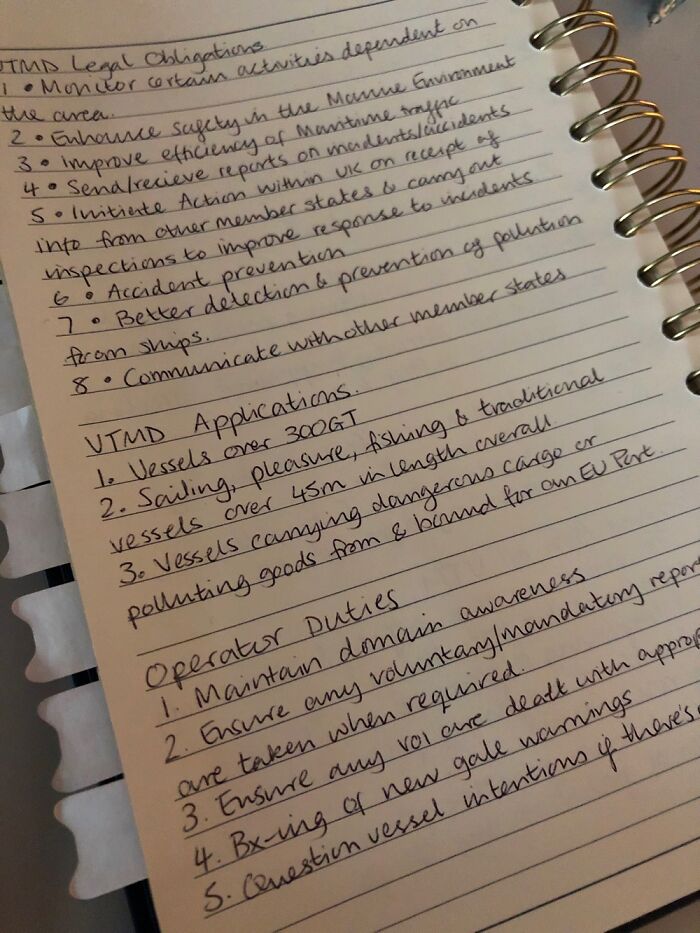 VTMD Legal Obligations
1 • Monitor certain activities dependent on
the area.
2 • Enhance safety in the Marine Environment
3 • improve efficiency of Maritime traffic
4 • Send/recieve reports on incidents/accidents
5 • Initiate Action within UK on receipt of
info from other member states & carry out
inspections to improve response to incidents
6 • Accident prevention
7 • Better detection & prevention of pollution
from ships.
8 • Communicate with other member states
VTMD Applications.
1. Vessels over 300GT
2. Sailing, pleasure, fishing & traditional
vessels over 45m in length overall.
3. Vessels carrying dangerous cargo or
polluting goods from & bound for an EU Port.
Operator Duties
1. Maintain domain awareness
2. Ensure any voluntary/mandatory repor
are taken when required.
3. Ensure any VOI are dealt with approp
4. Bx-ing of new gale warnings
5. Question vessel intentions if there's